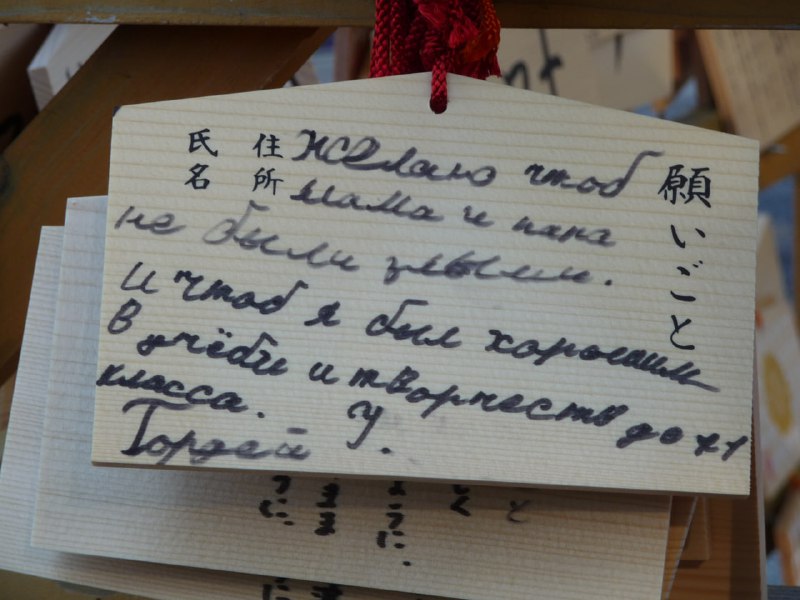 願いごと
住所
氏名
Желаю чтоб
мама и папа
не были злыми.
И чтоб я был хорошим
в учёбы и творчеств до 11
класса.
Гордей У.